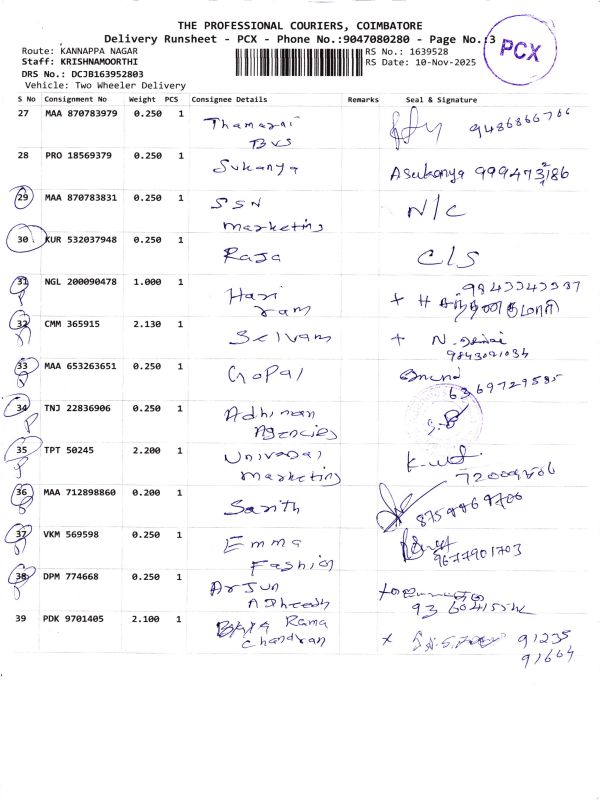 THE PROFESSIONAL COURIERS, COIMBATORE
Delivery Runsheet - PCX - Phone No.:9047080280 - Page No.:3
PCX
Route: KANNAPPA NAGAR
RS No.: 1639528
Staff: KRISHNAMOORTHI
RS Date: 10-Nov-2025
DRS No.: DCJB163952803
Vehicle: Two Wheeler Delivery
S No Consignment No Weight PCS Consignee Details Remarks Seal & Signature
27 MAA 870783979 0.250 1 Thamarai
BVS
28 PRO 18569379 0.250 1 Sukanya Asukanya
29 MAA 870783831 0.250 1 SSN N/C
marketing
30 KUR 532037948 0.250 1 Raja C/S
31 NGL 200090478 1.000 1 Hari
ram
32 CMM 365915 2.130 1 Selvam
9843021034
33 MAA 653263651 0.250 1 Gopal
6369729585
34 TNJ 22836906 0.250 1 Adhiman
Agencies
35 TPT 50245 2.200 1 Univasal
marketing
36 MAA 712898860 0.200 1 Sarith
37 VKM 569598 0.250 1 Emma 9677901703
Fashion
38 DPM 774668 0.250 1 Arjun
39 PDK 9701405 2.100 1 Rama 91235
Chandran 91664